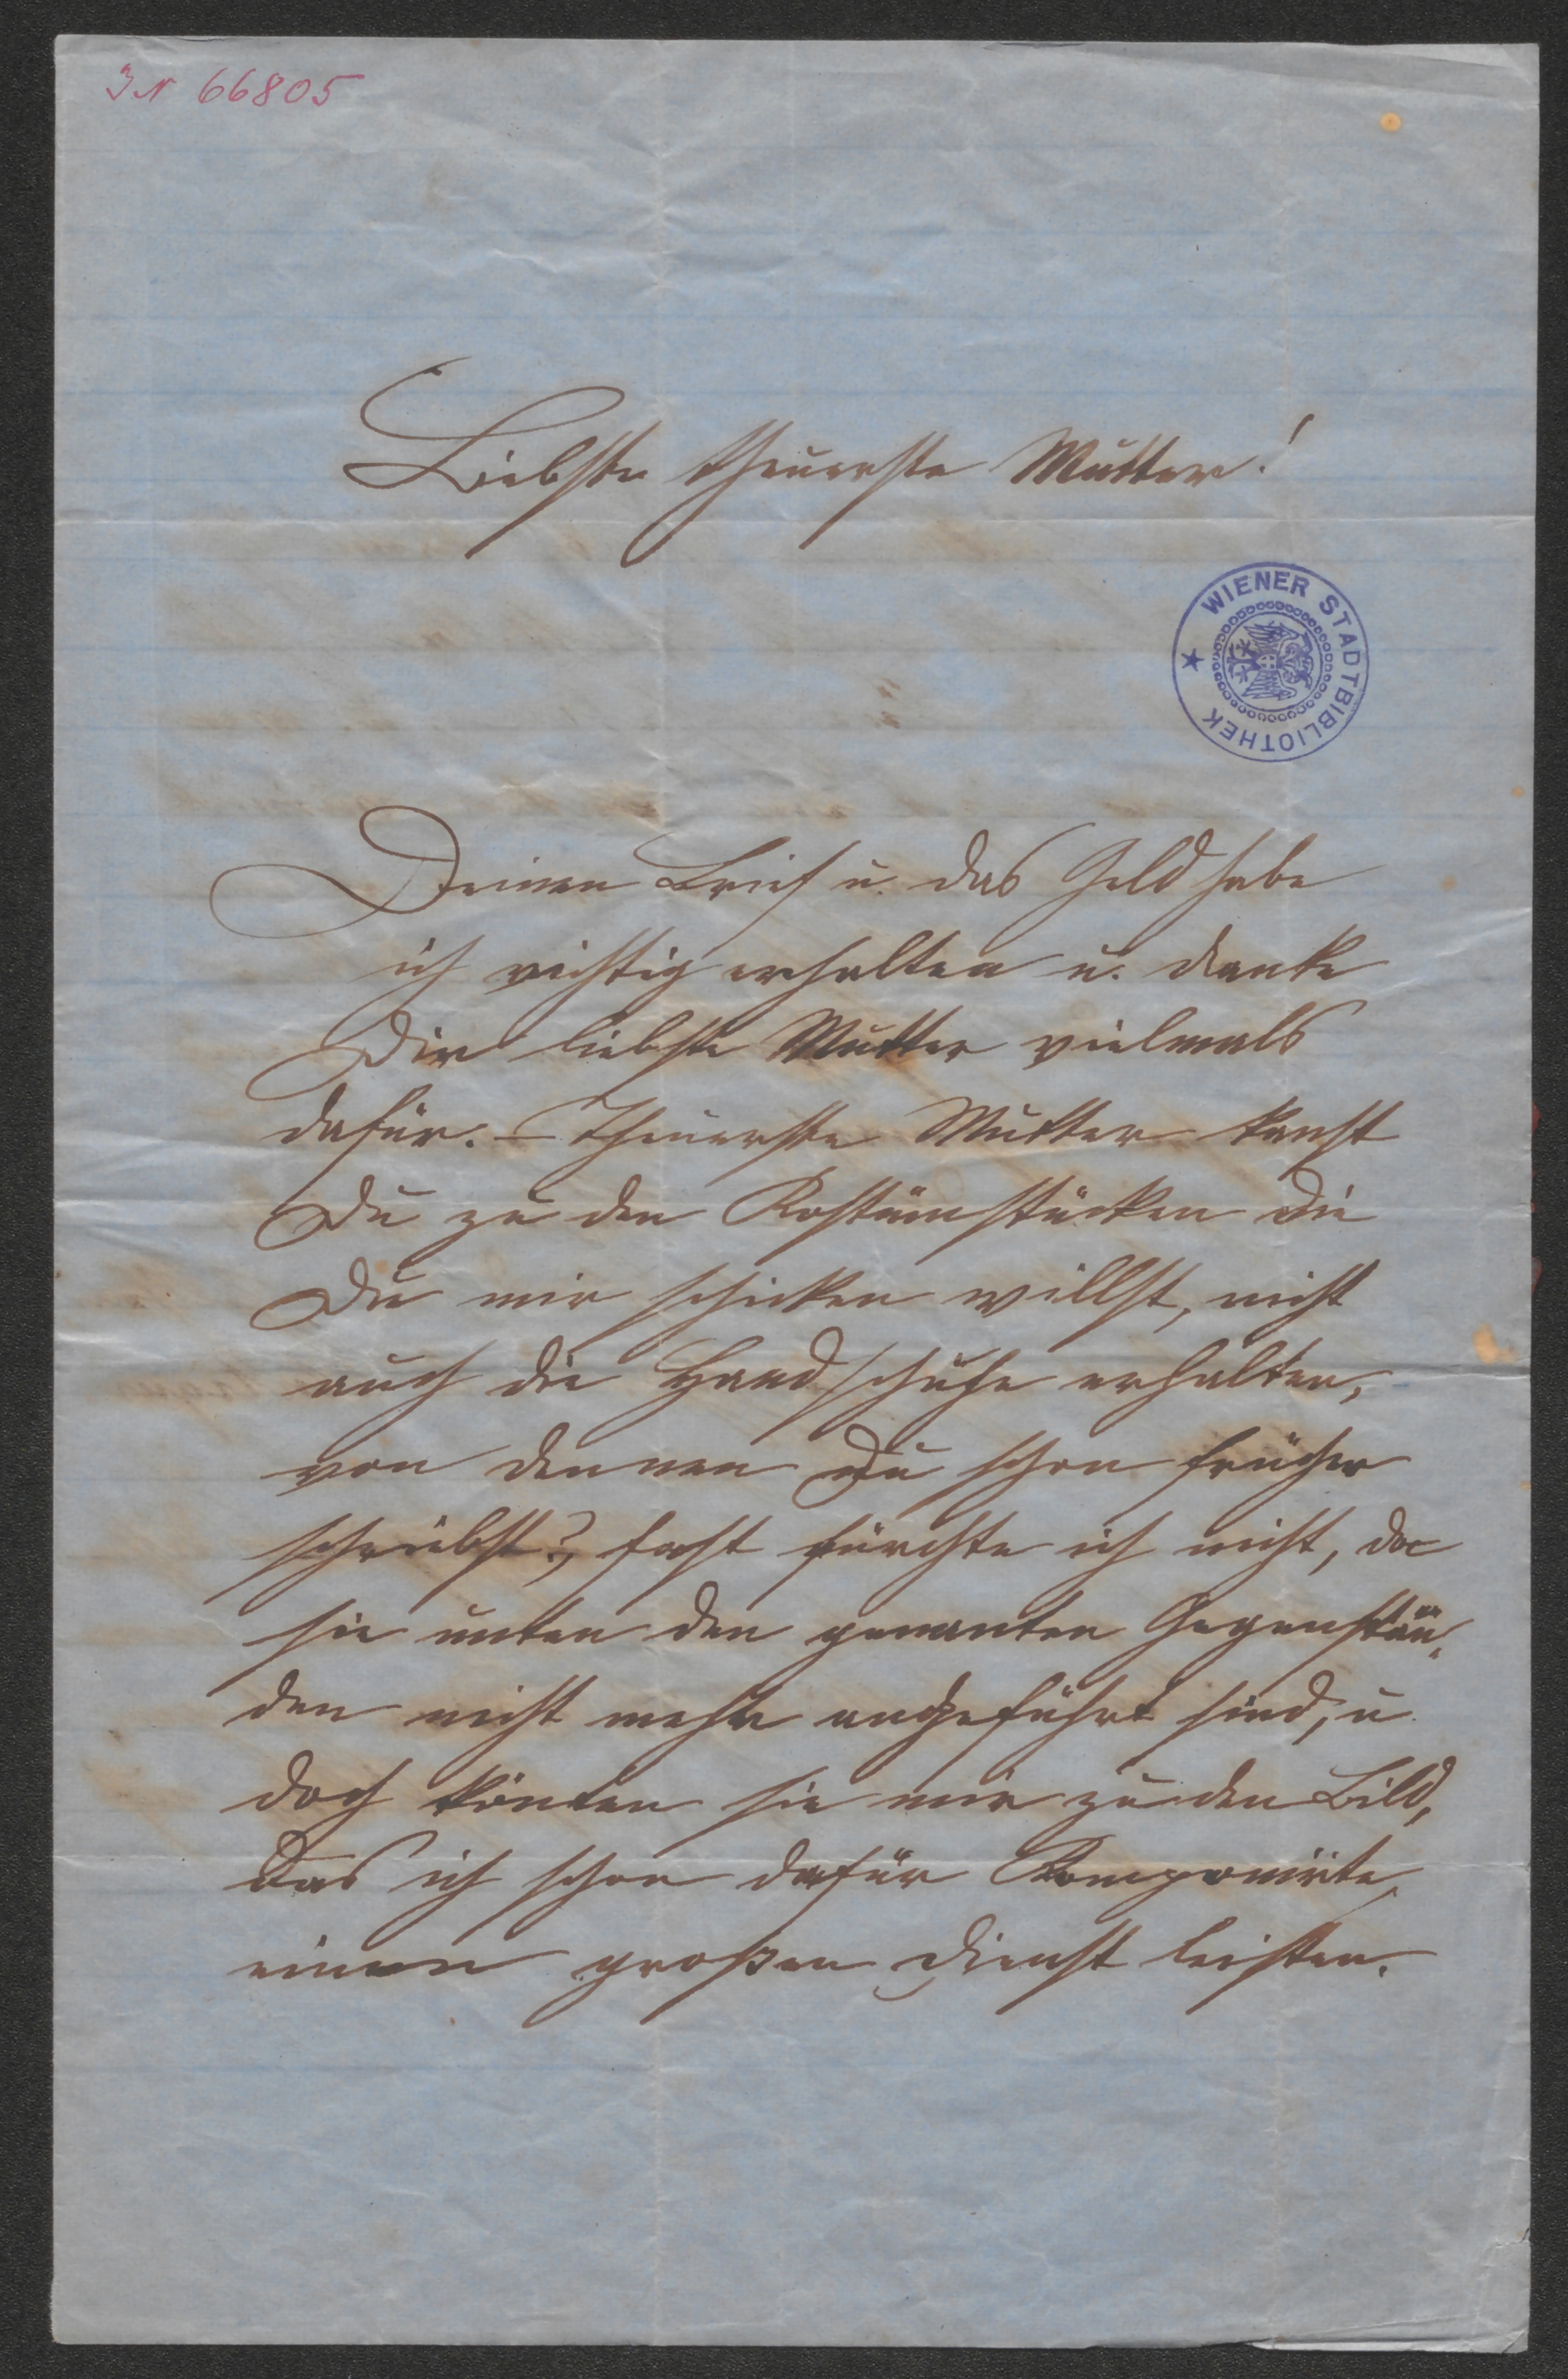 JN 66805
Liebste theuerste Mutter!
WIENER STADTBIBLIOTHEK
Deinen Brief u. das Geld habe
ich richtig erhalten u. danke
Dir liebste Mutter vielmals
dafür. – Theuerste Mutter kanst
Du zu den Kostümstücken die
Du mir schicken willst, nicht
auch die Handschuhe erhalten,
von dennen Du schon früher
schriebst?, fast fürchte ich nicht, da
sie unter den genanten Gegenstän„
den nicht mehr angeführt sind, u
doch könten sie mir zu den Bild,
das ich schon dafür Komponirte,
einen großen Dienst leisten.